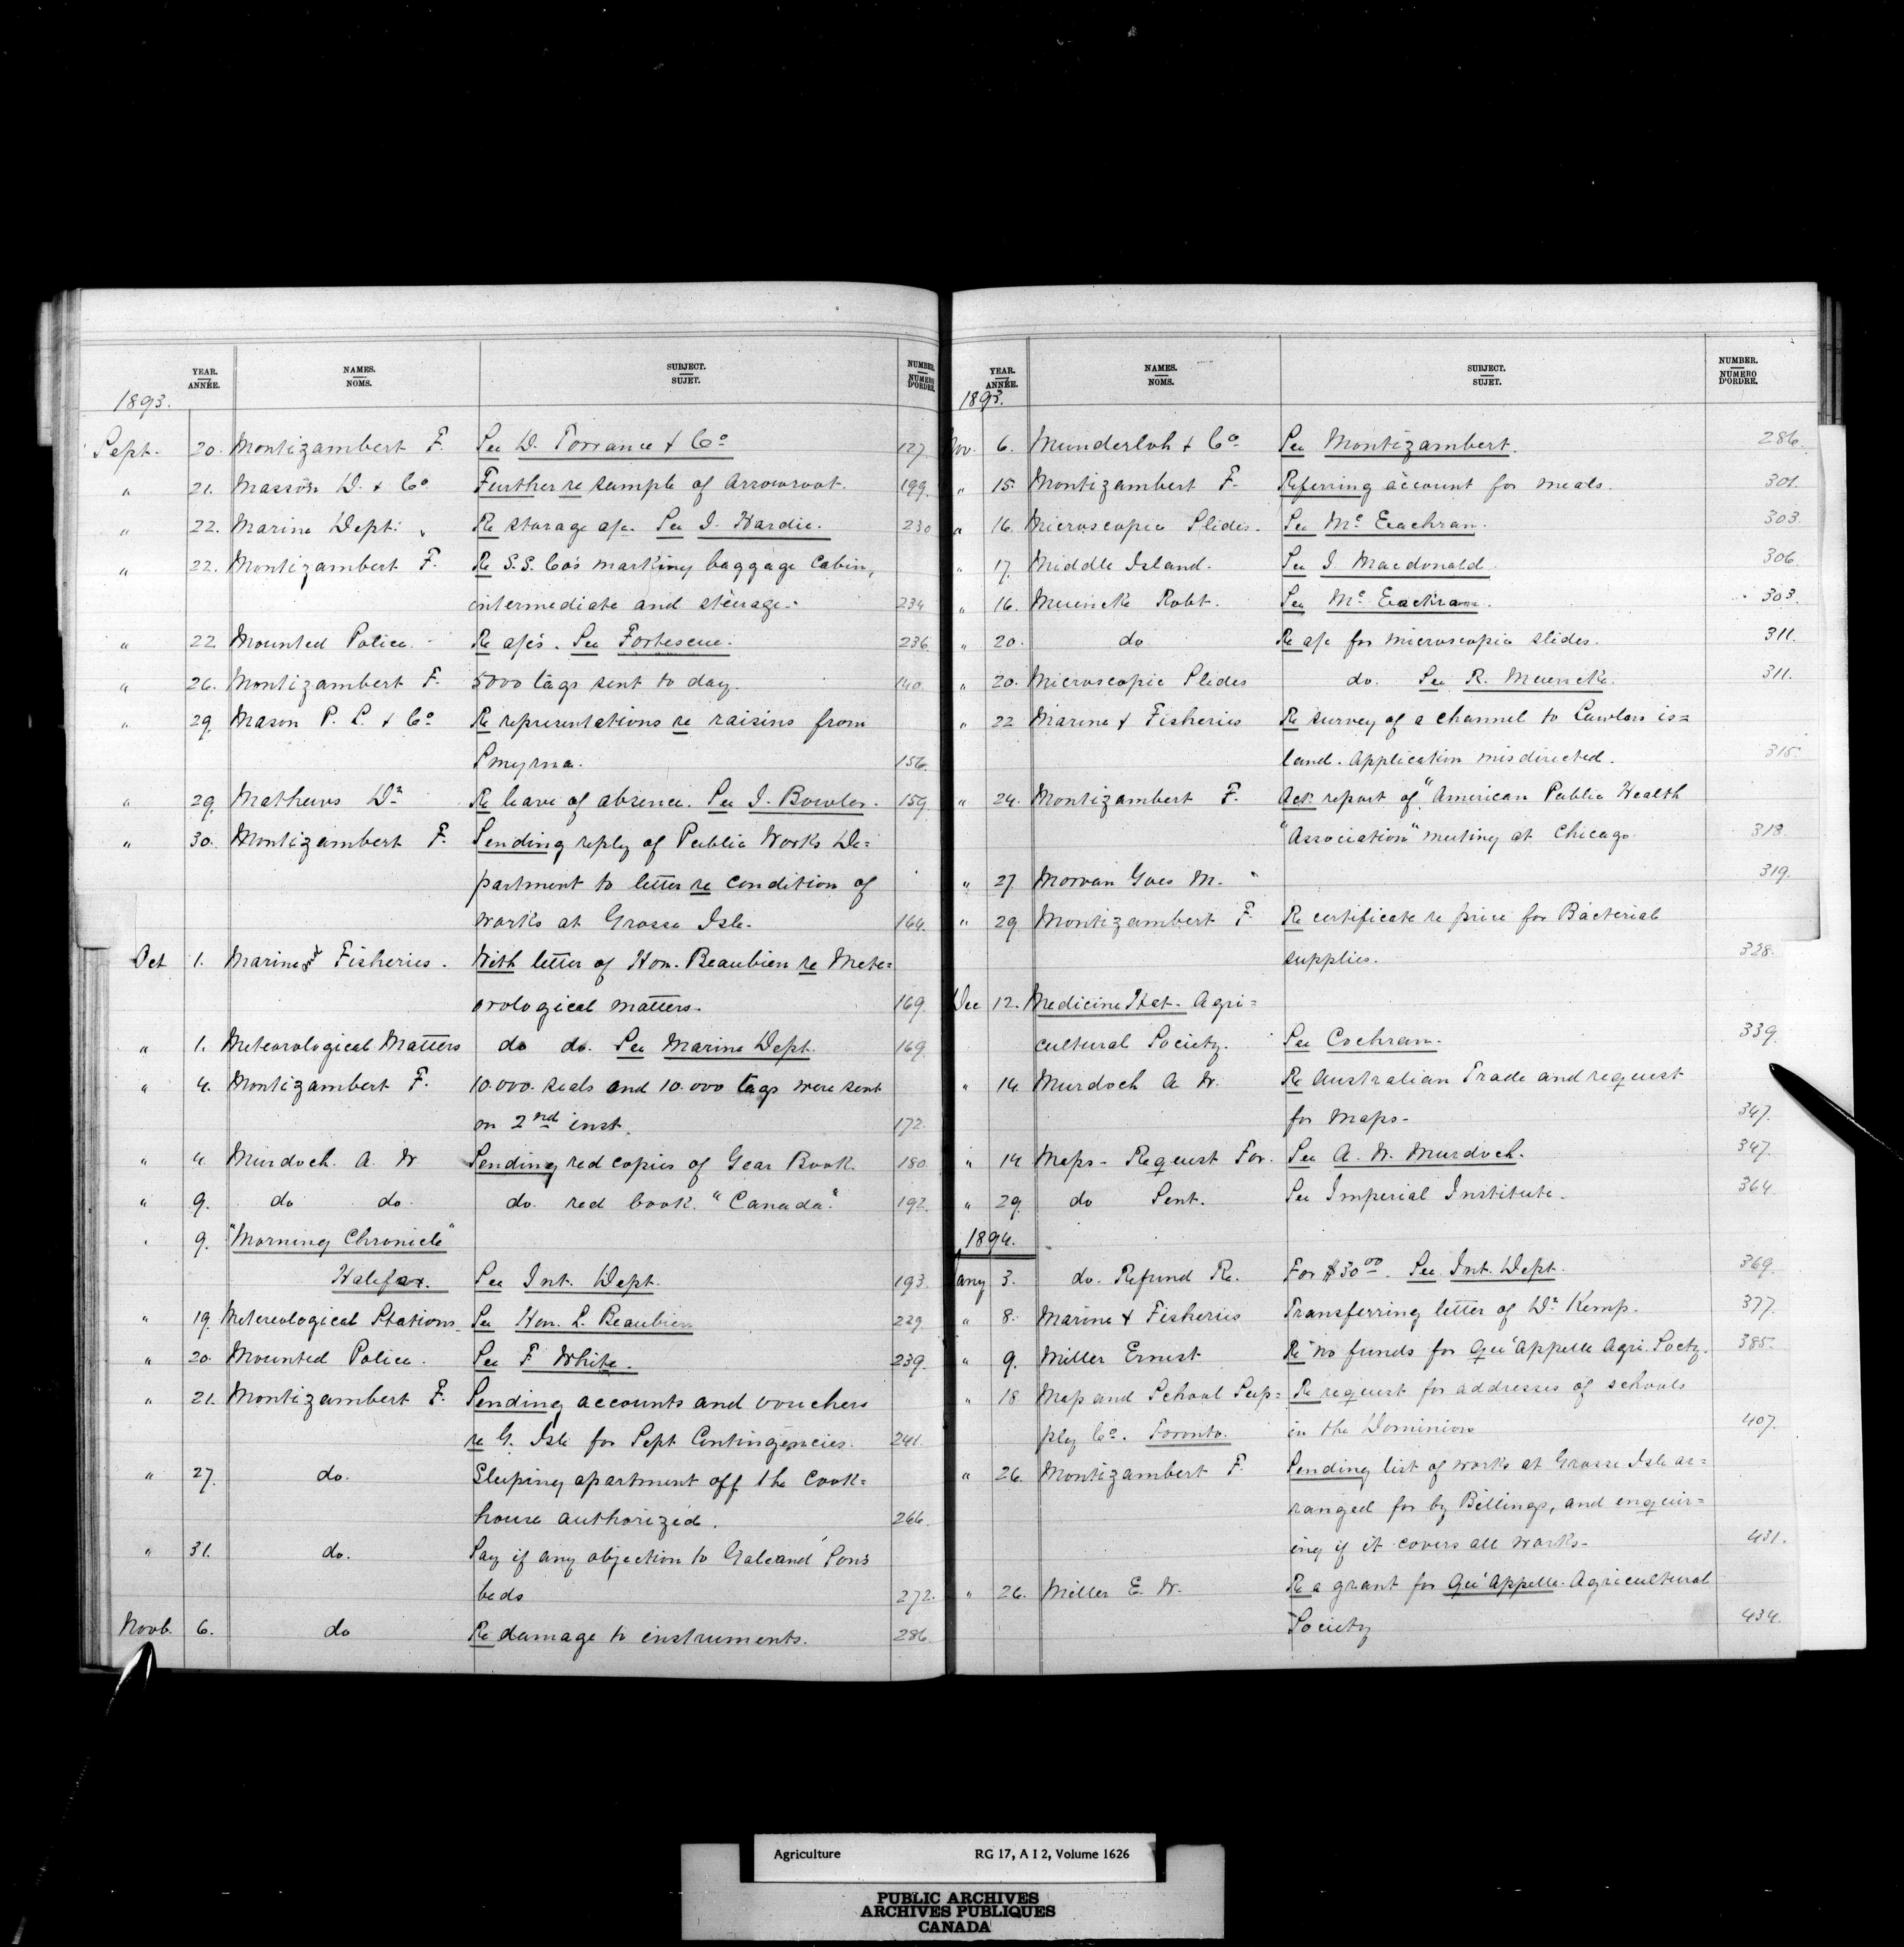 YEAR. ANNÉE. NAMES. NOMS. SUBJECT. SUJET. NUMBER. NUMERO D'ORDRE.
1893.
Sept. 20. Montizambert F. See D. Torrance & Co 127.
" 21. Masson D. & Co Further re sample of Arrowroot. 199.
" 22. Marine Dept. " Re storage a/c. See J. Hardie. 230
" 22. Montizambert F. Re S.S. Co's marking baggage Cabin,
intermediate and steerage. 234
" 22 Mounted Police. Re a/c's. See Fortescue. 236.
" 26. Montizambert F. 5000 tags sent to day. 140.
" 29. Mason P. L. & Co Re representations re raisins from
Smyrna. 156.
" 29. Mathews Dr Re leave of absence. See J. Bowler. 159.
" 30. Montizambert F. Sending reply of Public Works De=
partment to letter re condition of
works at Grosse Isle. 164.
Oct 1. Marine and Fisheries. With letter of Hon. Beaubien re Mete=
orological matters. 169.
" 1. Meteorological Matters do do. See Marine Dept. 169.
" 4. Montizambert F. 10.000 seals and 10.000 tags were sent
on 2nd inst. 172.
" 4 Murdoch. A. W Sending red copies of Year Book. 180
" 9. do do. do. red book. "Canada". 192.
. 9. "Morning Chronicle"
Halifax. See Int. Dept. 193.
" 19. Metereological Stations. See Hon. L. Beaubien 229.
" 20. Mounted Police. See F White. 239.
" 21. Montizambert F. Sending accounts and vouchers
re G. Isle for Sept Contingencies. 241.
" 27. do. Sleeping apartment off the Cook=
house authorized. 266.
" 31. do. Say if any objection to Gale and Sons
beds 272.
Novb. 6. do Re damage to instruments. 286
YEAR. ANNÉE. NAMES. NOMS. SUBJECT. SUJET. NUMBER. NUMERO D'ORDRE.
1893.
Nov. 6. Munderloh & Co. See Montizambert. 286.
" 15. Montizambert F. Referring account for meals. 301.
" 16. Microscopic Slides. See Mc Eachran. 303.
" 17. Middle Island. See J Macdonald. 306
" 16. Muencke Robt. See Mc Eachran. 303.
" 20. do Re a/c for microscopic slides. 311.
" 20. Microscopic Slides do. See R. Muencke. 311.
" 22 Marine & Fisheries Re survey of a channel to Lawlors is=
land. Application misdirected. 315
" 24. Montizambert F. Ack. report of "American Public Health
"Association" meeting at Chicago. 318.
" 27 Morvan Yves M. " 319.
" 29 Montizambert F. Re certificate re price for Bacterial
supplies. 328.
Dec 12. Medicine Hat. Agri=
cultural Society. See Cochran. 339.
" 14. Murdoch A W. Re Australian Trade and request
for Maps. 347.
" 14 Maps. Request For. See A. W. Murdoch. 347.
" 29. do Sent. See Imperial Institute. 364
1894.
Jany 3. do. Refund Re. For $30.00. See Int. Dept. 369.
" 8. Marine & Fisheries Transferring letter of Dr Kemp. 377.
" 9. Miller Ernest Re no funds for Qu'Appelle Agri. Socty. 385.
" 18 Map and School Sup= Re request for addresses of schools
ply Co. Toronto. in the Dominion 407.
" 26. Montizambert F. Sending list of works at Grosse Isle ar=
ranged for by Billings, and enquir=
ing if it covers all works. 431.
" 26. Miller E. W. Re a grant for Qu'Appelle. Agricultural
Society 434.
Agriculture RG 17, A I 2, Volume 1626
PUBLIC ARCHIVES
ARCHIVES PUBLIQUES
CANADA